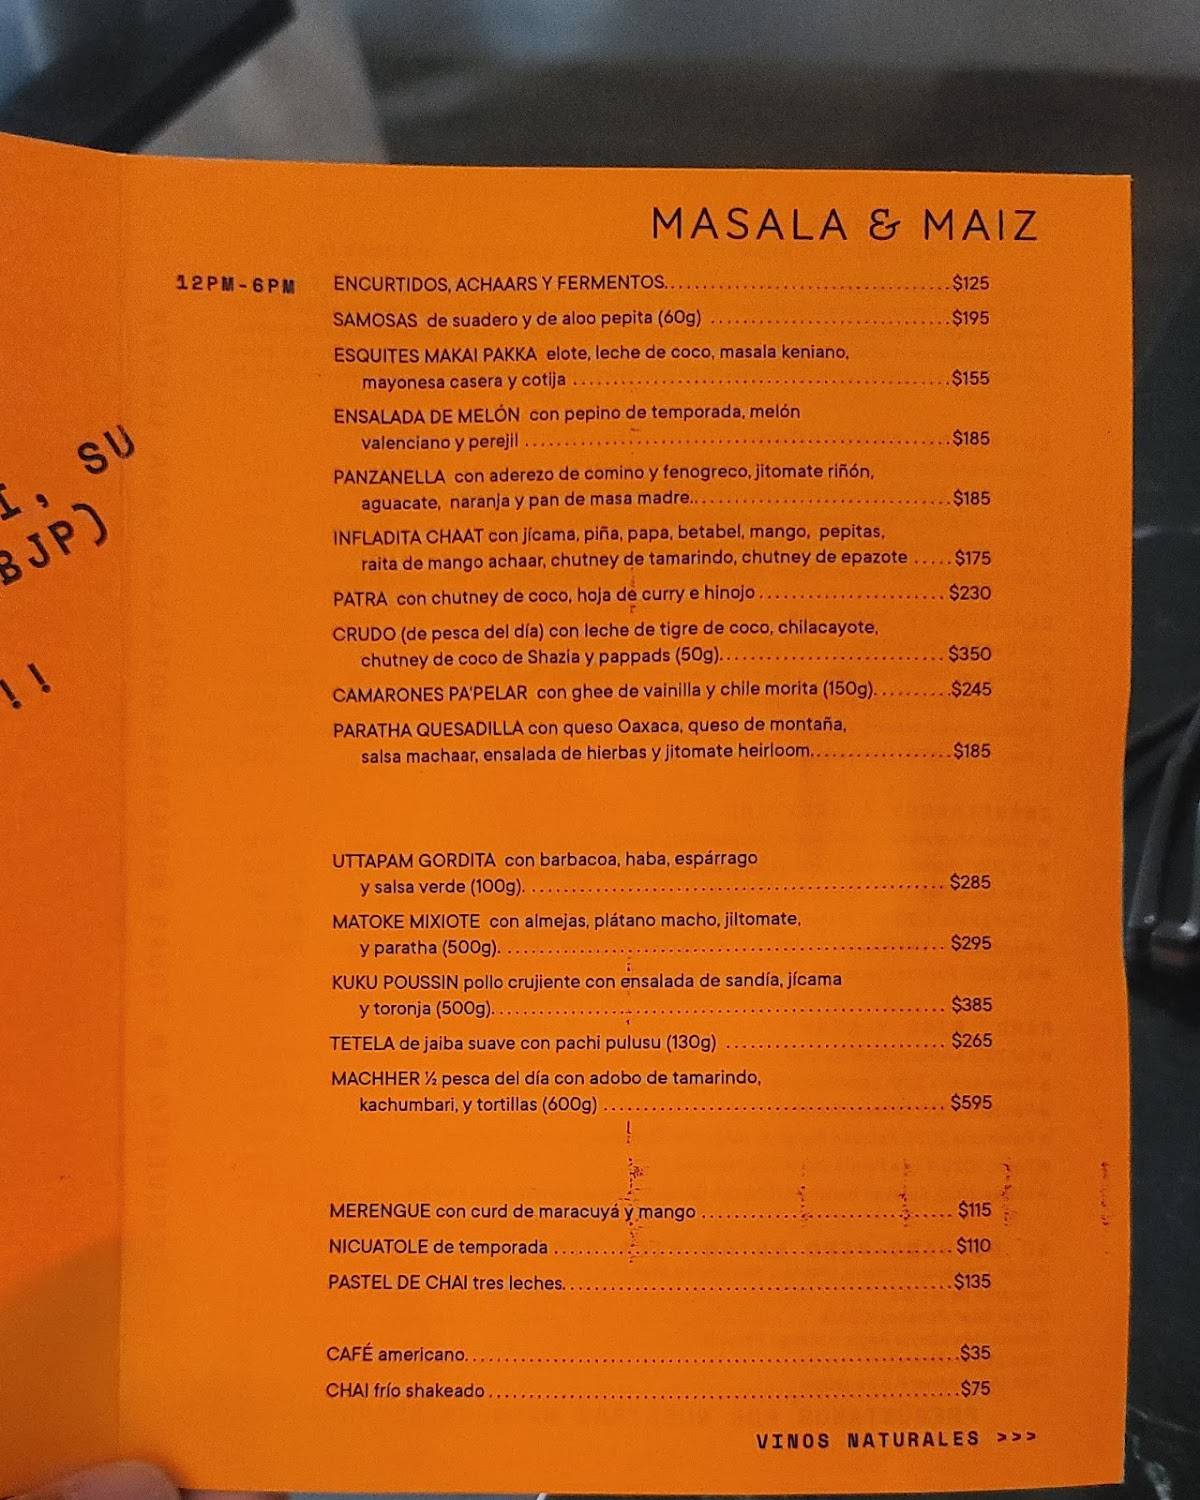 MASALA & MAIZ
12PM-6PM
ENCURTIDOS, ACHAARS Y FERMENTOS.......................$125
SAMOSAS de suadero y de aloo pepita (60g) .......................$195
ESQUITES MAKAI PAKKA elote, leche de coco, masala keniano,
mayonesa casera y cotija .......................$155
ENSALADA DE MELÓN con pepino de temporada, melón
valenciano y perejil .......................$185
PANZANELLA con aderezo de comino y fenogreco, jitomate riñón,
aguacate, naranja y pan de masa madre.......................$185
INFLADITA CHAAT con jícama, piña, papa, betabel, mango, pepitas,
raita de mango achaar, chutney de tamarindo, chutney de epazote .....$175
PATRA con chutney de coco, hoja de curry e hinojo .......................$230
CRUDO (de pesca del día) con leche de tigre de coco, chilacayote,
chutney de coco de Shazia y pappads (50g).......................$350
CAMARONES PA'PELAR con ghee de vainilla y chile morita (150g)..........$245
PARATHA QUESADILLA con queso Oaxaca, queso de montaña,
salsa machaar, ensalada de hierbas y jitomate heirloom.................$185
UTTAPAM GORDITA con barbacoa, haba, espárrago
y salsa verde (100g).......................$285
MATOKE MIXIOTE con almejas, plátano macho, jiltomate,
y paratha (500g).......................$295
KUKU POUSSIN pollo crujiente con ensalada de sandía, jícama
y toronja (500g).......................$385
TETELA de jaiba suave con pachi pulusu (130g) .......................$265
MACHHER ½ pesca del día con adobo de tamarindo,
kachumbari, y tortillas (600g) .......................$595
MERENGUE con curd de maracuyá y mango .......................$115
NICUATOLE de temporada .......................$110
PASTEL DE CHAI tres leches.......................$135
CAFÉ americano.......................$35
CHAI frío shakeado .......................$75
VINOS NATURALES >>>
I, SU
BJP)
!!